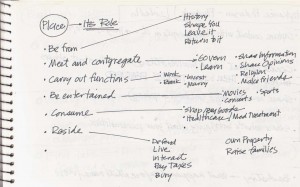 Place → Its Role
• Be from
History
Shape You
Leave it
Return to it
• Meet and congregate
• Govern
• Learn
• Share Information
• Share Opinions
• Religion
• Make friends
• Carry out functions
• Work
• Bank
• Invest
• Marry
• Be entertained
• Movies
• Concerts
• Sports
• Consume
• Shop/Buy Goods
• Healthcare/Med Treatment
• Reside
•
Defend
Live
Interact
Pay Taxes
Bury
Own Property
Raise Families